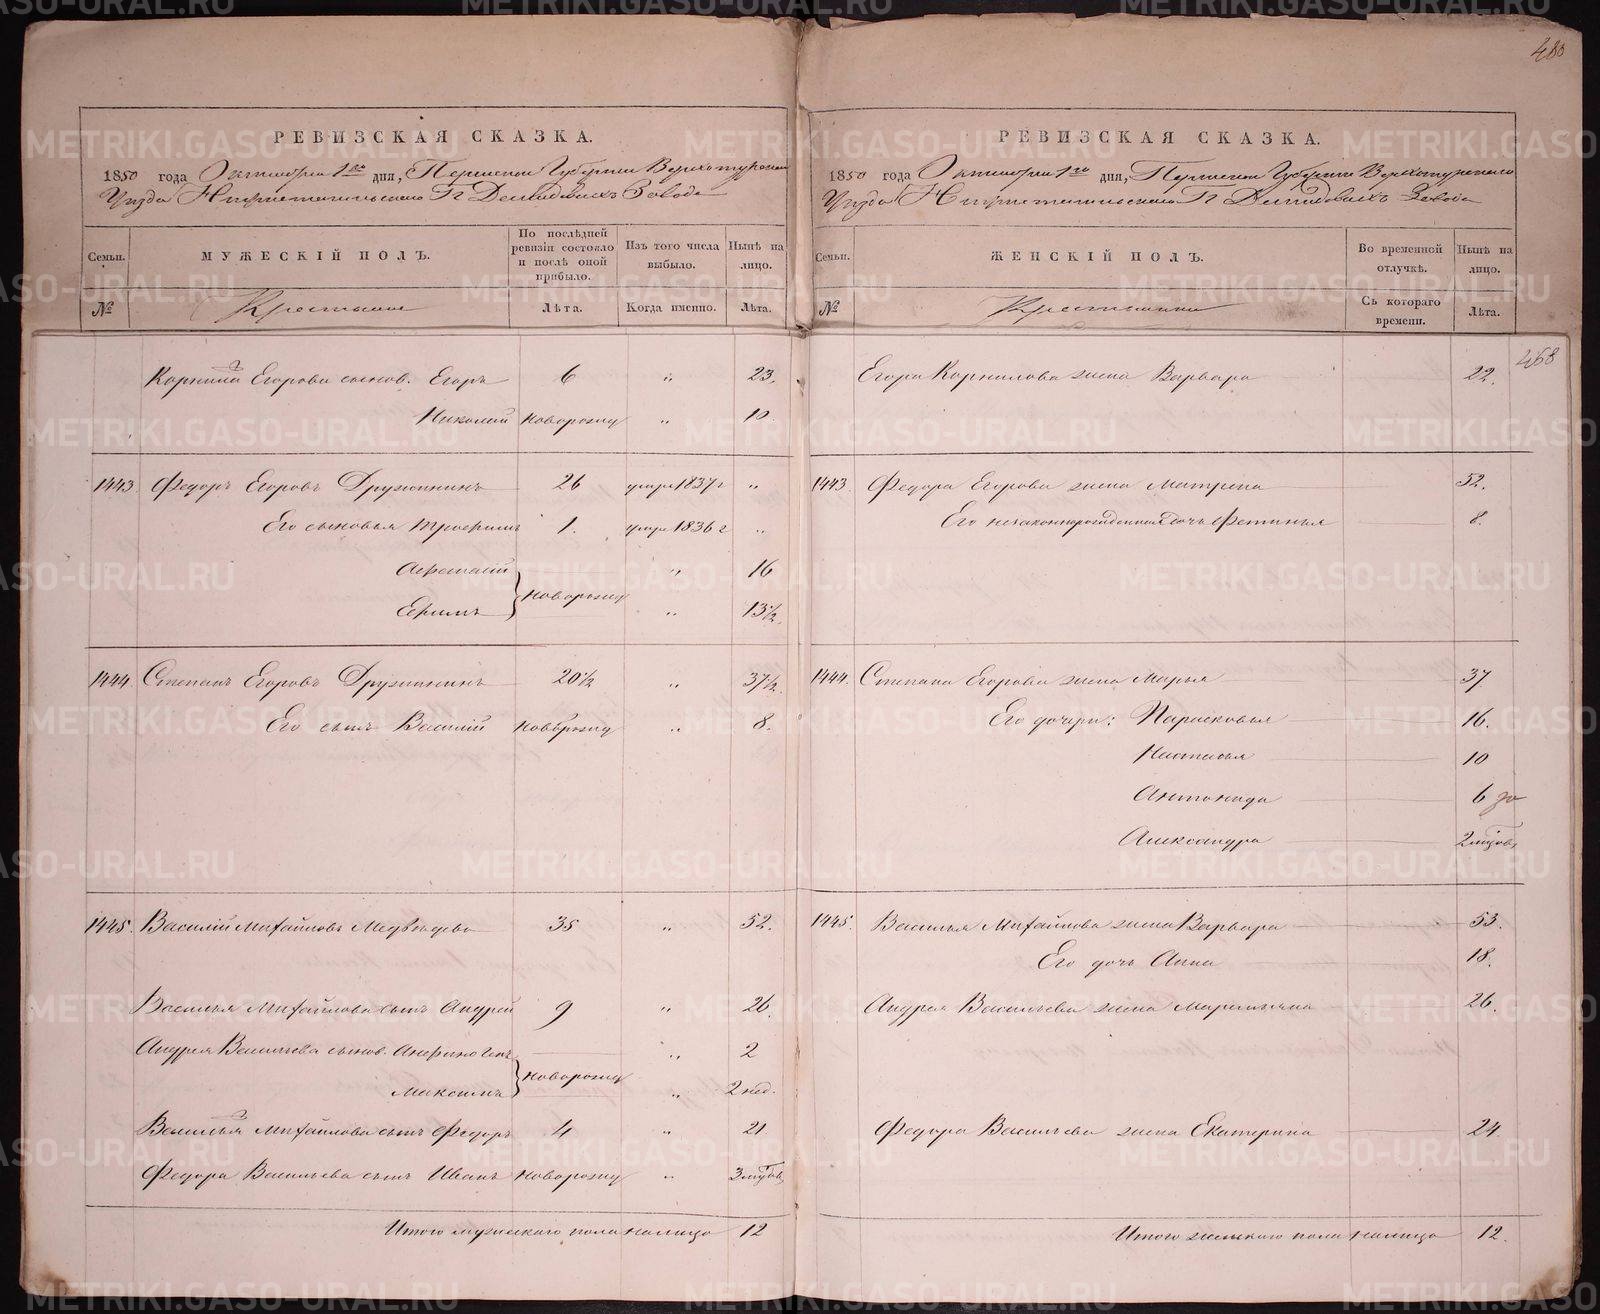 480
РЕВИЗСКАЯ СКАЗКА.
1850 года Октября 1го дня, Пермской Губернии Верхотурскаго
Уезда Нижнетагильскаго Гг Демидовыхъ Завода
Семьи.
МУЖЕСКІЙ ПОЛЪ.
По послѣдней ревизіи состояло и послѣ оной прибыло.
Изъ того числа выбыло.
Нынѣ на лицо.
№
Крестьяне
Лѣта.
Когда именно.
Лѣта.
Корнила Егорова сынов. Егоръ 6 " 23.
Николай новорожд " 10
1443. Федоръ Егоровъ Дружининъ 26 умре 1837 г "
Его сыновья Трофимъ 1. умре 1836 г "
Афанасій новорожд " 16
Ефимъ " 13 1/2
1444. Степанъ Егоровъ Дружининъ 20 1/2 " 37 1/2
Его сынъ Василій новорожд " 8.
1445. Василій Михайловъ Медвѣдевъ 35 " 52.
Василья Михайлова сынъ Андрей 9 " 26.
Андрея Васильева сынов. Анфиногенъ новорожд " 2
Максимъ " 2 нед.
Василья Михайлова сынъ Федоръ 4 " 21
Федора Васильева сынъ Иванъ новорожд " 3 мѣсов.
Итого мужескаго пола налицо 12
РЕВИЗСКАЯ СКАЗКА.
1850 года Октября 1го дня, Пермской Губернии Верхотурскаго
Уезда Нижнетагильскаго Гг Демидовыхъ Завода
Семьи.
ЖЕНСКІЙ ПОЛЪ.
Во временной отлучкѣ.
Нынѣ на лицо.
№
Крестьянки
Съ котораго времени.
Лѣта.
468
Егора Корнилова жена Варвара 22.
1443. Федора Егорова жена Матрена 52.
Его незаконнорожденная дочь Фетинья 8.
1444. Степана Егорова жена Марья 37
Его дочери: Парасковья 16.
Настасья 10
Антонида 6
Александра 2 мѣсов.
1445. Василья Михайлова жена Варвара 53.
Его дочь Анна 18.
Андрея Васильева жена Маремьяна 26.
Федора Васильева жена Екатерина 24.
Итого женскаго пола налицо 12.
METRIKI.GASO-URAL.RU